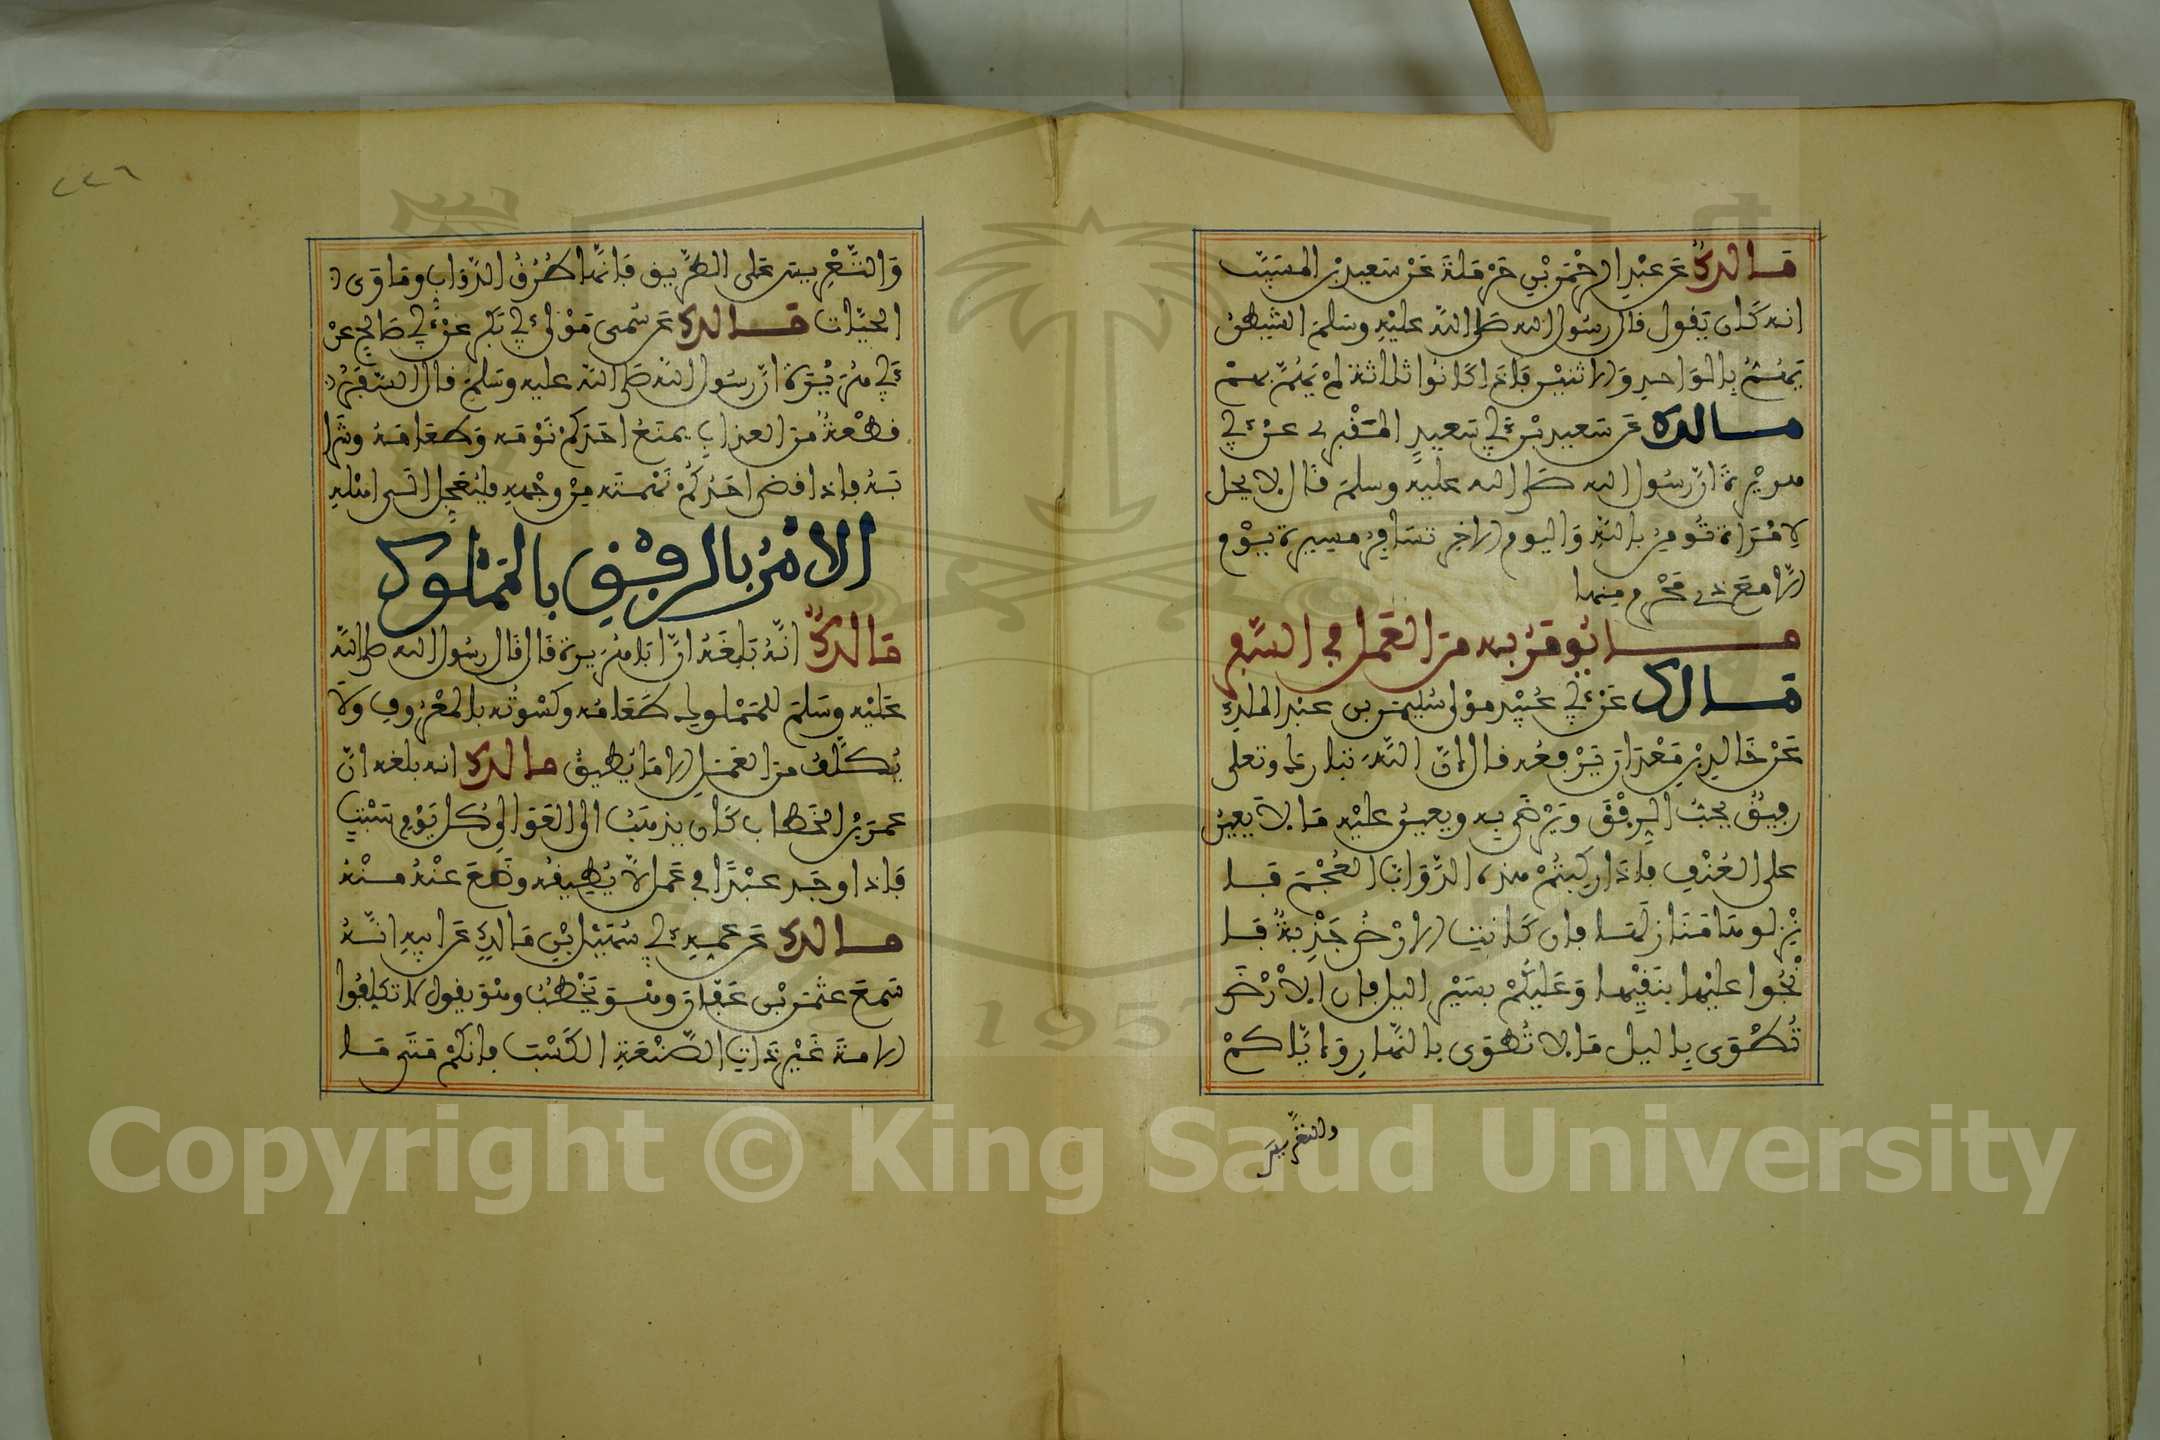 مالك عن عبد الرحمن بن حرملة عن سعيد بن المسيب
انه كان يقول قال رسول الله صلى الله عليه وسلم الشيطن
يهم بالواحد والاثنين فاذا كانوا ثلاثة لم يهم بهم
مالك عن سعيد بن ابي سعيد المقبري عن ابي
هريرة ان رسول الله صلى الله عليه وسلم قال لا يحل
لامراة تومن بالله واليوم الاخر تسافر مسيرة يوم
الا مع ذي محرم منها
ما يومر به من العمل في السفر
مالك عن ابي عبيد مولى سليمن بن عبد الملك
عن خالد بن معدان يرفعه قال ان الله تبارك وتعلى
رفيق يحب الرفق ويرضى به ويعين عليه ما لا يعين
على العنف فاذا ركبتم هذه الدواب العجم فا
نزلوها منازلها فان كانت الارض جدبة فا
نجوا عليها بنقيها وعليكم بسير اليل فان الارض
تطوى باليل ما لا تطوى بالنهار واياكم
والتعريس
٢٢٦
والتعريس على الطريق فانها طرق الدواب وماوى ا
لحيات مالك عن سمي مولى ابي بكر عن ابي صالح عن
ابي هريرة ان رسول الله صلى الله عليه وسلم قال السفر
قطعة من العذاب يمنع احدكم نومه وطعامه وشرا
به فاذا قضى احدكم نهمته من وجهه فليعجل الى اهله
الامر بالرفق بالمملوك
مالك انه بلغه ان ابا هريرة قال قال رسول الله صلى الله
عليه وسلم للمملوك طعامه وكسوته بالمعروف ولا
يكلف من العمل الا ما يطيق مالك انه بلغه ان
عمر بن الخطاب كان يذهب الى العوالي كل يوم سبت
فاذا وجد عبدا في عمل لا يطيقه وضع عنه منه
مالك عن عمه ابي سهيل بن مالك عن ابيه انه
سمع عثمن بن عفان وهو يخطب وهو يقول لا تكلفوا
الامة غير ذات الصنعة الكسب فانكم متى ما
Copyright © King Saud University
1957